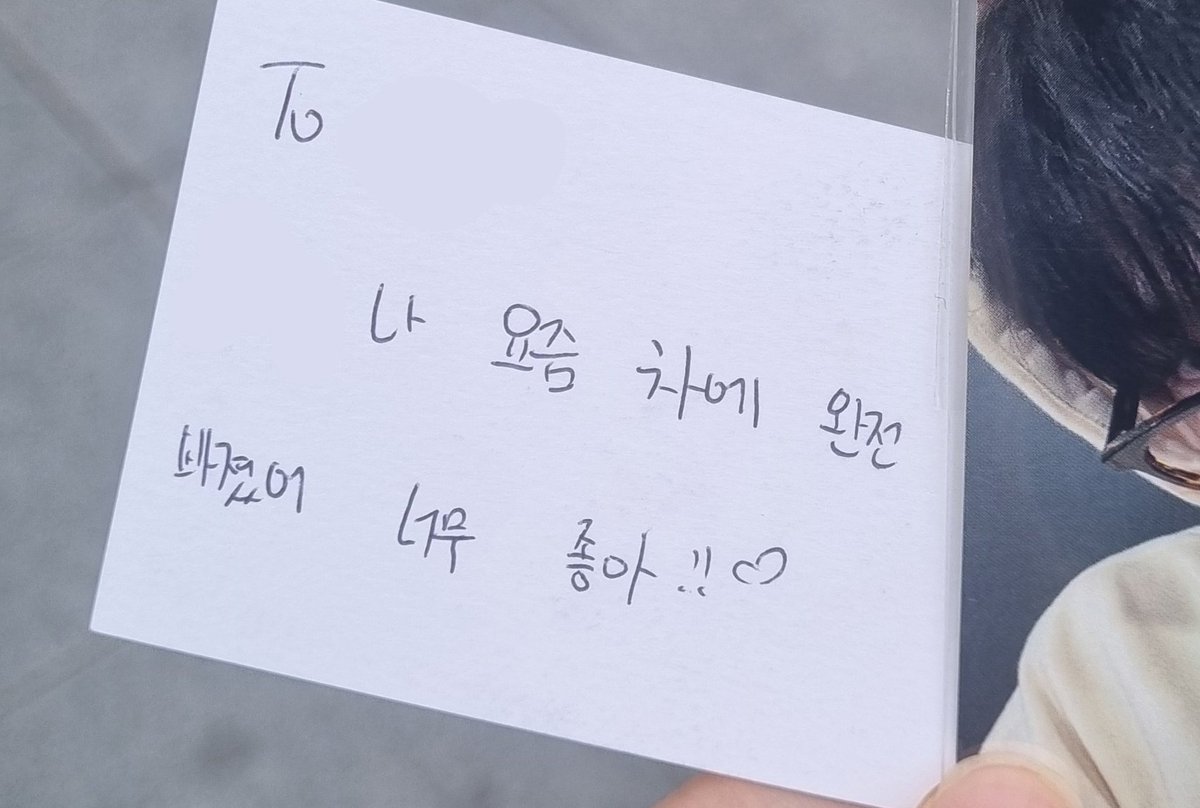 To
나 요즘 차에 완전
빠졌어 너무 좋아!!♡